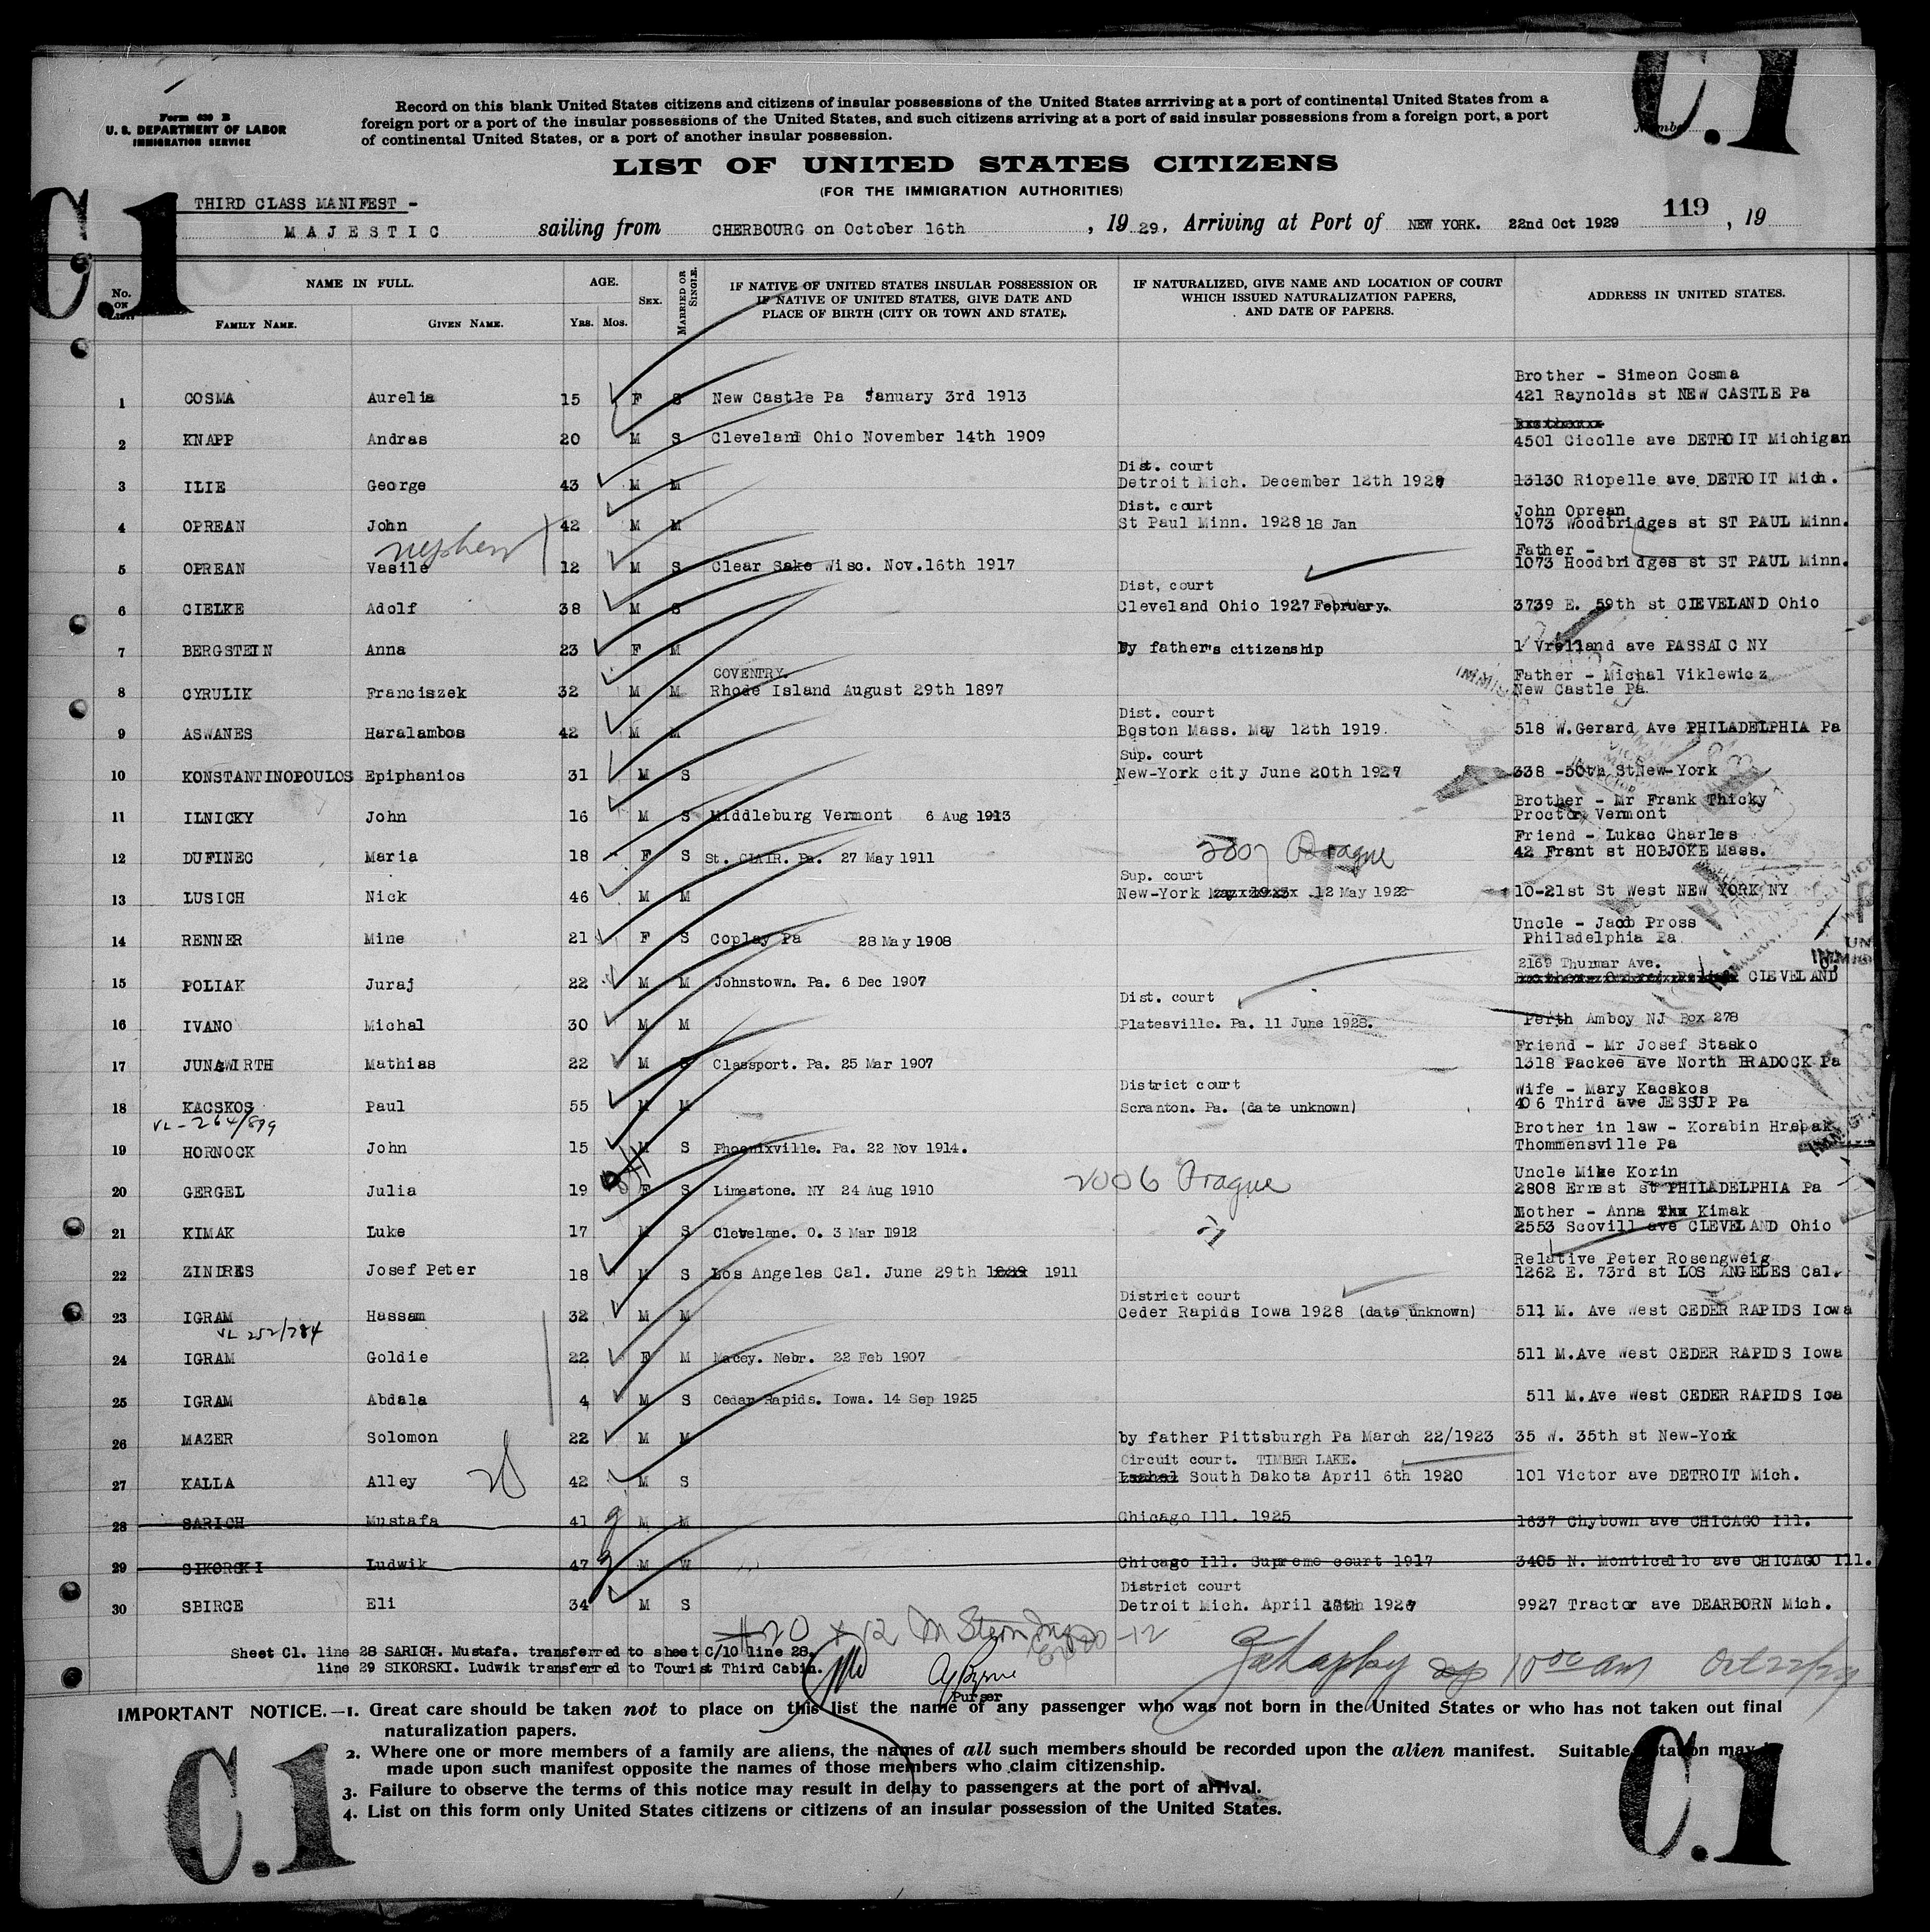 C.1
Form 630 B
U. S. DEPARTMENT OF LABOR
IMMIGRATION SERVICE
Record on this blank United States citizens and citizens of insular possessions of the United States arrriving at a port of continental United States from a
foreign port or a port of the insular possessions of the United States, and such citizens arriving at a port of said insular possessions from a foreign port, a port
of continental United States, or a port of another insular possession.
LIST OF UNITED STATES CITIZENS
(FOR THE IMMIGRATION AUTHORITIES)
C.1
THIRD CLASS MANIFEST -
MAJESTIC sailing from CHERBOURG on October 16th , 19 29, Arriving at Port of NEW YORK. 22nd Oct 1929 119 , 19
No. on List. NAME IN FULL. AGE. Sex. Married or Single. IF NATIVE OF UNITED STATES INSULAR POSSESSION OR IF NATIVE OF UNITED STATES, GIVE DATE AND PLACE OF BIRTH (CITY OR TOWN AND STATE). IF NATURALIZED, GIVE NAME AND LOCATION OF COURT WHICH ISSUED NATURALIZATION PAPERS, AND DATE OF PAPERS. ADDRESS IN UNITED STATES.
Family Name. Given Name. Yrs. Mos.
Brother - Simeon Cosma
1 COSMA Aurelia 15 F S New Castle Pa January 3rd 1913 421 Raynolds st NEW CASTLE Pa
2 KNAPP Andras 20 M S Cleveland Ohio November 14th 1909 4501 Cicolle ave DETROIT Michigan
Dist. court
3 ILIE George 43 M M Detroit Mich. December 12th 1928 13130 Riopelle ave. DETROIT Mich.
Dist. court John Oprean
4 OPREAN John 42 M M St Paul Minn. 1928 18 Jan 1073 Woodbridges st ST PAUL Minn.
nephew Father -
5 OPREAN Vasile 12 M S Clear Sake Wisc. Nov.16th 1917 1073 Hoodbridges st ST PAUL Minn.
Dist, court
6 CIELKE Adolf 38 M S Cleveland Ohio 1927 February. 3739 E. 59th st CLEVELAND Ohio
7 BERGSTEIN Anna 23 F M By father's citizenship 1 Vrelland ave PASSAIC NY
COVENTRY. Father - Michal Viklewicz
8 CYRULIK Franciszek 32 M M Rhode Island August 29th 1897 New Castle Pa.
Dist. court
9 ASWANES Haralambos 42 M M Boston Mass. May 12th 1919. 518 W.Gerard Ave PHILADELPHIA Pa
Sup. court
10 KONSTANTINOPOULOS Epiphanios 31 M S New-York city June 20th 1927 338 -50th StNew-York
Brother - Mr Frank Thicky
11 ILNICKY John 16 M S Middleburg Vermont 6 Aug 1913 Proctor Vermont
Friend - Lukac Charles
12 DUFINEC Maria 18 F S St. CLAIR. Pa. 27 May 1911 2007 Prague 42 Frant st HOBJOKE Mass.
Sup. court
13 LUSICH Nick 46 M M New-York 12 May 1922 10-21st St West NEW YORK NY
Uncle - Jacob Pross
14 RENNER Mine 21 F S Coplay Pa 28 May 1908 Philadelphia Pa
2169 Thurmar Ave.
15 POLIAK Juraj 22 M M Johnstown. Pa. 6 Dec 1907 CLEVELAND
Dist. court
16 IVANO Michal 30 M M Platesville. Pa. 11 June 1928. Perth Amboy NJ Box 278
Friend - Mr Josef Stasko
17 JUNGWIRTH Mathias 22 M S Classport. Pa. 25 Mar 1907 1318 Packee ave North BRADOCK Pa
District court Wife - Mary Kacskos
18 KACSKOS Paul 55 M M Scranton. Pa. (date unknown) 406 Third ave JESSUP Pa
VL-264/899 Brother in law - Korabin Hrepak
19 HORNOCK John 15 M S Phoenixville. Pa. 22 Nov 1914. Thommensville Pa
Uncle Mike Korin
20 GERGEL Julia 19 F S Limestone. NY 24 Aug 1910 2006 Prague 2808 Ernest st PHILADELPHIA Pa
Mother - Anna Kimak
21 KIMAK Luke 17 M S Clevelane. O. 3 Mar 1912 2553 Scovill ave CLEVELAND Ohio
Relative Peter Rosengweig
22 ZINDRES Josef Peter 18 M S Los Angeles Cal. June 29th 1911 1262 E. 73rd st LOS ANGELES Cal.
District court
23 IGRAM Hassam 32 M M Ceder Rapids Iowa 1928 (date unknown) 511 M. Ave West CEDER RAPIDS Iowa
VL 252/784
24 IGRAM Goldie 22 F M Macey. Nebr. 22 Feb 1907 511 M.Ave West CEDER RAPIDS Iowa
25 IGRAM Abdala 4 M S Cedar Rapids. Iowa. 14 Sep 1925 511 M.Ave West CEDER RAPIDS Iowa
26 MAZER Solomon 22 M M by father Pittsburgh Pa March 22/1923 35 W. 35th st New-York
Circuit court. TIMBER LAKE.
27 KALLA Alley 42 M S South Dakota April 6th 1920 101 Victor ave DETROIT Mich.
28 SARICH Mustafa 41 M M Chicago Ill. 1925 1637 Chybown ave CHICAGO Ill.
29 SIKORSKI Ludwik 47 M W Chicago Ill. Supreme court 1917 3405 N. Monticello ave CHICAGO Ill.
District court
30 SBIRCE Eli 34 M S Detroit Mich. April 1927 9927 Tractor ave DEARBORN Mich.
Sheet C1. line 28 SARICH. Mustafa. transferred to sheet C/10 line 28.
line 29 SIKORSKI. Ludwik transferred to Tourist Third Cabin.
10 00 am Oct 22/29
Purser
IMPORTANT NOTICE.—1. Great care should be taken not to place on this list the name of any passenger who was not born in the United States or who has not taken out final
naturalization papers.
2. Where one or more members of a family are aliens, the names of all such members should be recorded upon the alien manifest. Suitable notation may
made upon such manifest opposite the names of those members who claim citizenship.
3. Failure to observe the terms of this notice may result in delay to passengers at the port of arrival.
4. List on this form only United States citizens or citizens of an insular possession of the United States.
C.1
C.1